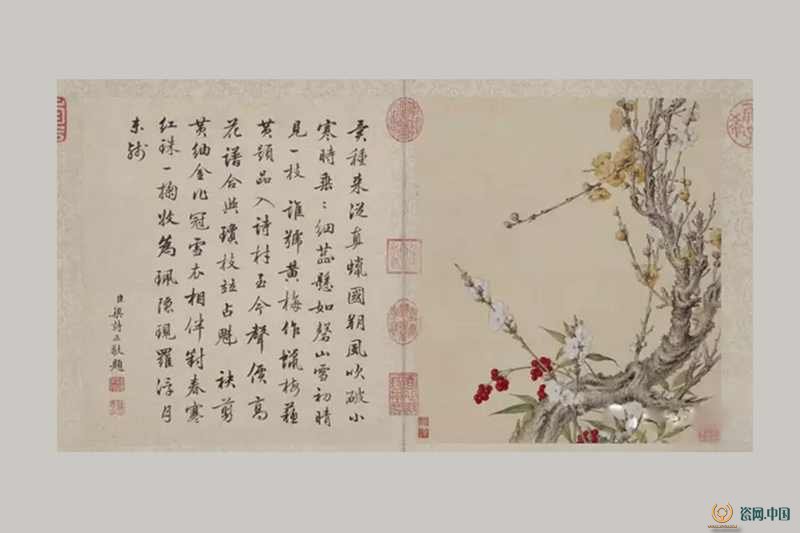 異種来從真蠟國朔風吹破小
寒時垂〻細蕊懸如磬山雪初晴
見一枝 誰號黃梅作蠟梅蘓
黃題品入詩材至今聲價高
花譜合與瓊枝竝占魁 袂剪
黃紬金作冠雪衣相伴對春寒
紅珠一掬收為珮隱現羅浮月
未殘
臣梁詩正敬題
瓷网.中国